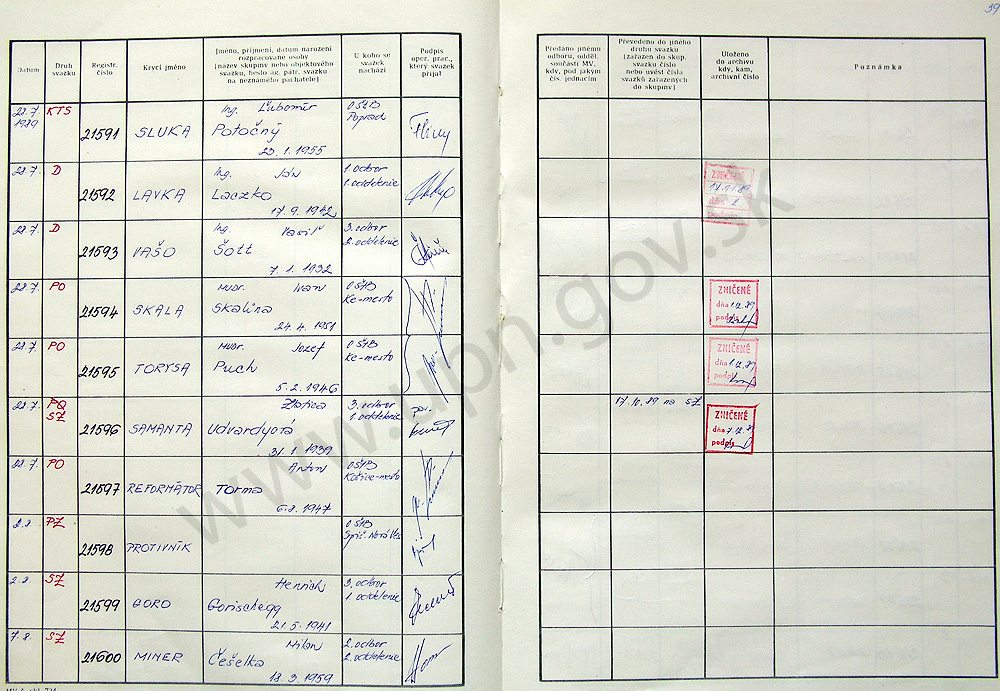 39
Datum
Druh svazku
Registr. číslo
Krycí jméno
Jméno, příjmení, datum narození
rozpracované osoby
[název skupiny nebo objektového
svazku, heslo ag. pátr. svazku
na neznámého pachatele]
U koho se
svazek
nachází
Podpis
oper. prac.,
který svazek
přijal
Předáno jinému
odboru, odděl.
součásti MV,
kdy, pod jakým
čís. jednacím
Převedeno do jiného
druhu svazku
[zařazen do skup.
svazku číslo
nebo uvést čísla
svazků zařazených
do skupiny]
Uloženo
do archivu
kdy, kam,
archivní číslo
Poznámka
22.7. KTS Ing. Ľubomír OŠtB
1989 21591 SLUKA Potočný Poprad
23.1.1955
22.7. D Ing. Ján 1. odbor
21592 LAVKA Laczko 1. oddelenie
17.9.1942
ZNIČENÉ
dňa
podpis
22.7. D Ing. 3. odbor
21593 VAŠO Šott 2. oddelenie
7.1.1932
22.7. PO MUDr. Ivan OŠtB
21594 SKALA Skalina Ke-mesto
24.4.1951
ZNIČENÉ
dňa 1.12.89
podpis
22.7. PO MUDr. Jozef OŠtB
21595 TORYSA Puch Ke-mesto
5.2.1946
ZNIČENÉ
dňa 1.12.89
podpis
22.7. PO Zlatica 3. odbor 17.10.89 na SZ
SZ 21596 SAMANTA Udvardyová 1. oddelenie
31.1.1939
ZNIČENÉ
dňa 7.12.89
podpis
22.7. PO Anton OŠtB
21597 REFORMÁTOR Torma Košice-mesto
6.2.1947
2.8. PZ OŠtB
21598 PROTIVNÍK Spiš. Nová Ves
2.8. SZ Henrich 3. odbor
21599 GORO Gorischegg 1. oddelenie
21.5.1941
7.8. SZ Milan 2. odbor
21600 MINER Češelka 2. oddelenie
18.3.1959
www.upn.gov.sk